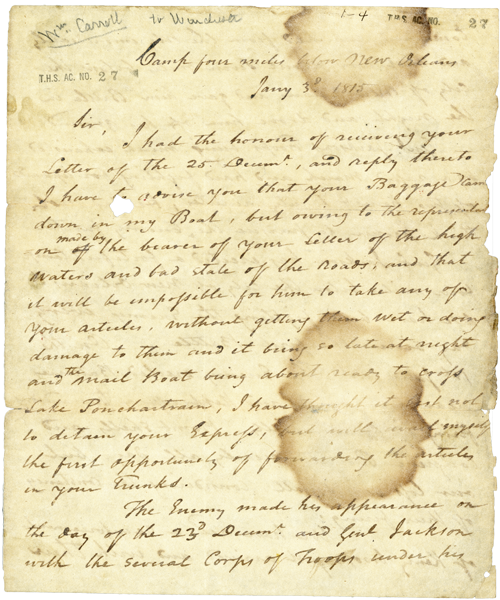 Wm. Carroll to Winchester
1-4 T.H.S. AC. NO. 27
T.H.S. AC. NO. 27
Camp four miles below New Orleans
Jany 3d 1815
Sir,
I had the honour of reciving your
Letter of the 25. Decemr., and reply thereto
I have to advise you that your Baggage Came
down in my Boat, but owing to the representati
on off made by the bearer of your Letter of the high
Waters and bad state of the Roads, and that
it will be impossible for him to take any of
your articles, without getting them wet or doing
damage to them and it being so late at night
and the Mail Boat being about ready to cross
Lake Ponchartrain, I have thought it best not
to detain your Express, but will avail myself
the first opportunity of forwarding the articles
in your Trunks.
The Enemy made his appearance on
the day of the 23d Decemr. and Genl. Jackson
with the several Corps of Troops under his